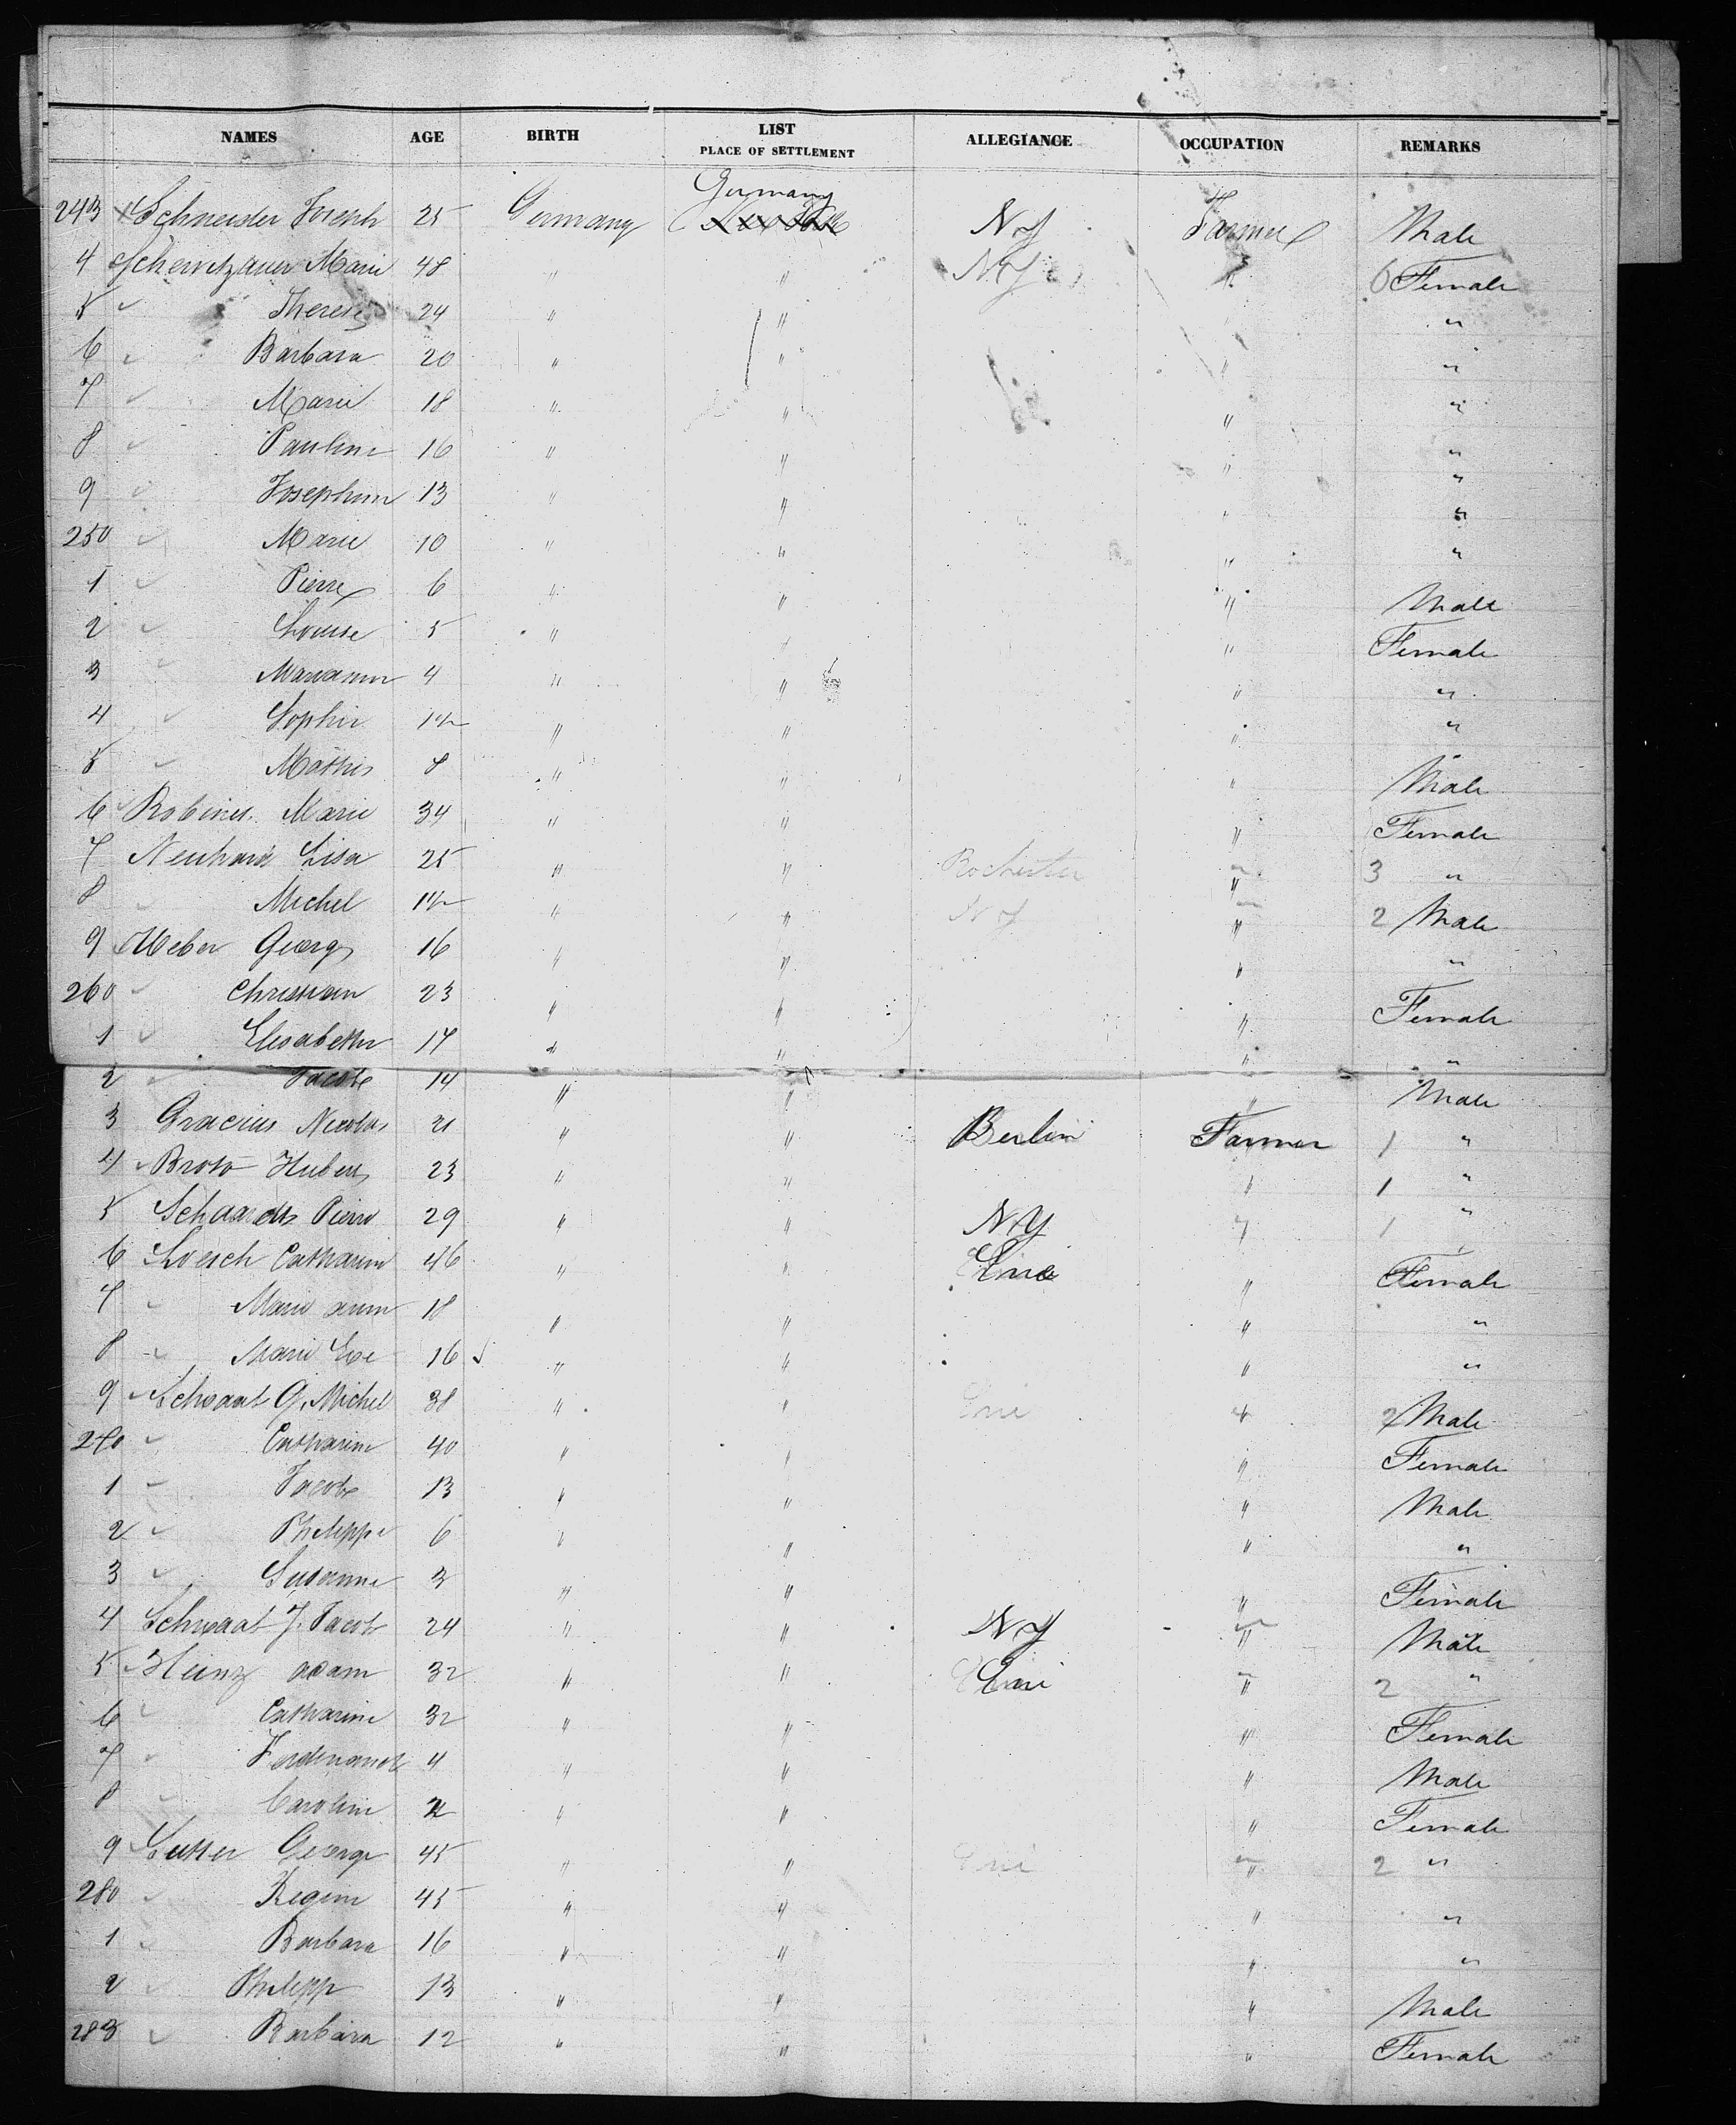 NAMES AGE BIRTH LIST PLACE OF SETTLEMENT ALLEGIANCE OCCUPATION REMARKS
Germany
243 Schneider Joseph 25 Germany NY Farmer Male
4 Marie 48 " " NY 6 Female
5 " Therese 24 " " "
6 " Barbara 20 " " " "
7 " Marie 18 " " " "
8 " Pauline 16 " " " "
9 " Josephine 13 " " " "
250 " Marie 10 " " " "
1 " Pierre 6 " " " Male
2 " Louise 5 " " " Female
3 " Mariann 4 " " " "
4 " Sophie " " " "
5 " Mathis 8 " " " Male
6 Marie 34 " " " Female
7 Neuhard Lisa 25 " " Rochester " 3 "
8 " Michel " " NY " 2 Male
9 Weber Georg 16 " " " "
260 " Christian 23 " " " Female
1 " Elisabeth 17 " " " "
2 " Jacob 14 " " " Male
3 Gracius Nicolas 21 " " Berlin Farmer 1 "
4 Hubert 23 " " " 1 "
5 Pierre 29 " " NY " 1 "
6 Loesch Catharine 46 " " Erie " Female
7 " Marie ann 18 " " " "
8 " Marie Eve 16 " " " "
9 Schwaab G. Michel 38 " " Erie " 2 Male
270 " Catharine 40 " " " Female
1 " Jacob 13 " " " Male
2 " Philippe 6 " " " "
3 " Susanne 3 " " " Female
4 Schwaab J. Jacob 24 " " NY " Male
5 Heinz adam 32 " " Erie " 2 "
6 " Catharine 32 " " " Female
7 " Ferdinand 4 " " " Male
8 " Caroline 2 " " " Female
9 George 45 " " Erie " 2 "
280 " Regine 45 " " " "
1 " Barbara 16 " " " "
2 " Philipp 13 " " " Male
283 " Barbara 12 " " " Female